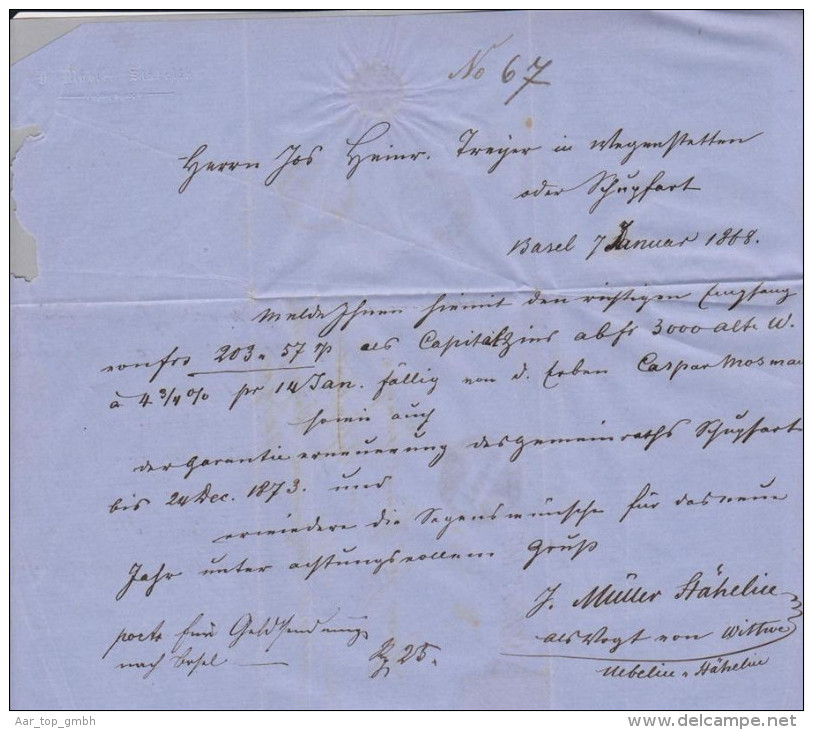 No 67
Herrn Jos Heinr. Treyer in Wegenstetten
oder Schupfart
Basel 7 Januar 1868.
Melde Ihnen hiemit den richtigen Empfang
von frs 203 " 57 rp als Capitalzins ab fs 3000 alte W.
à 4 3/4 % pr 14 Jan. fällig von d. Erben Caspar Mosman
sowie auch
der Garantie erneuerung des Gemeinraths Schupfart
bis 24 Dec. 1873. und
erwiedere die Segenswünsche für das neue
Jahr unter achtungsvollem Gruß
J. Müller Stähelin
als Vogt von Wittwe
Uebelin " Stähelin
porto für Geldsendung
nach Basel — Rp 25.
Aar_top_gmbh
www.delcampe.net